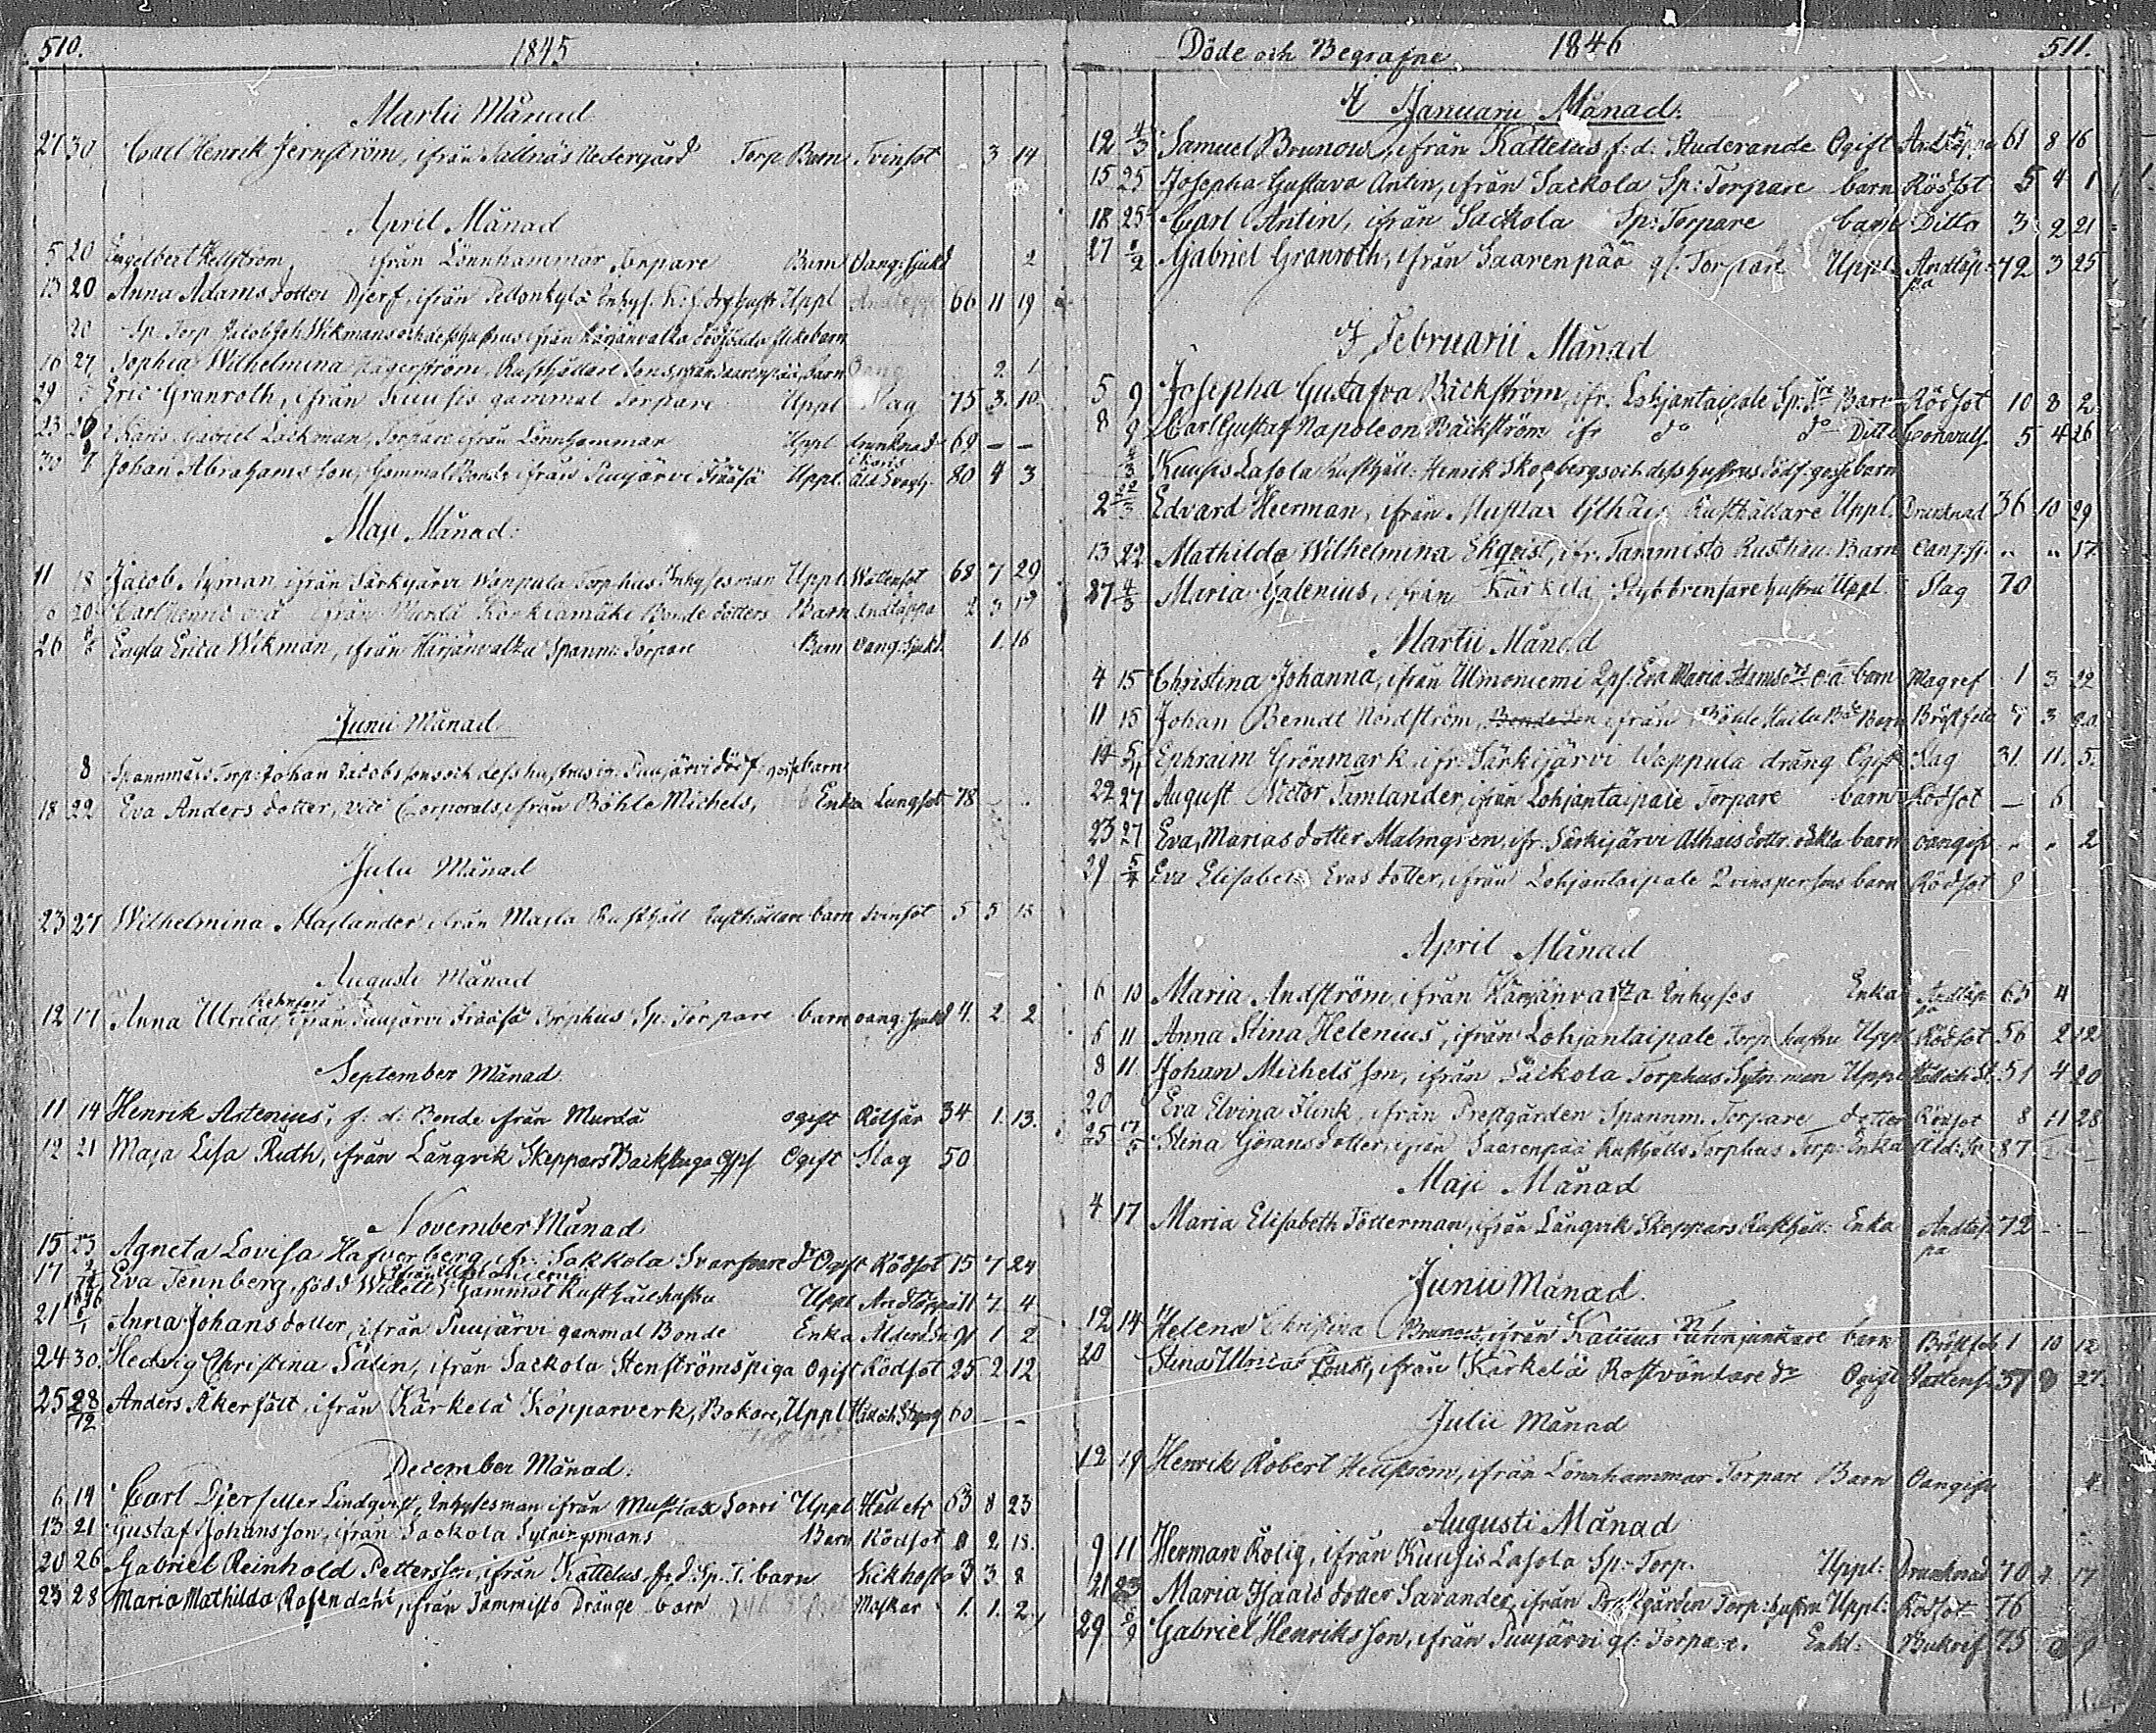 510.
1845
Martii Månad
27 30 Carl Henrik Jernström, ifrån Sallnäs Nedergård Torp. Barn Tvinsot 3 14
April Månad
5 20 Engelbert Hellström ifrån Lönnhammar Torpare Barn Oang. Sjukd 2
13 20 Anna Adams dotter Djerf, ifrån Pellonkylä Uppl 66 11 19
20 Sp. Torp. Jacob Joh. Wikmans och dess hustrus ifrån Härjänvalta dödfödda flickebarn
16 27 Sophia Wilhelmina Hägerström, Rusthållare Sons, ifrån Saarenpää, Barn 2 1
29 Eric Granroth, ifrån Kuusis gammal Torpare Uppl Slag 75 3 10
23 Gabriel Lackman, Torpare ifrån Lönnhammar Uppl Drunknad 69 – –
30 Johan Abrahams son, Gammal Bonde ifrån Suujärvi Fräåsä Uppl. 80 4 3
Maji Månad:
11 18 Jacob Nyman, ifrån Särkijärvi Wappula Torphus Inhyses man Uppl. Wattensot 68 7 29
6 20 Carl ifrån Murdå Bonde dotters Barn Andtäppa 2 3 19
26 Engla Erica Wikman, ifrån Härjänvalta Spanm. Torpare Barn Oang. Sjukd. 1. 16
Junii Månad
8 Spannmåls Torp. Johan Jacobs sons och dess hustrus ifr. Suujärvi dödf. gossebarn
18 22 Eva Anders dotter, vice Corporals, ifrån Böhle Michels, Enka Lungsot 78
Julii Månad
23 27 Wilhelmina Maslander, ifrån Maila Rusthåll Rusthållare barn Tvinsot 5 5 13
Augusti Månad
12 17 Anna Ulrica, ifrån Suujärvi Fräåsä Torphus Sp. Torpare barn oang. Sjukd 4. 2. 2
September Månad
11 14 Henrik Astenius, f. d. Bonde ifrån Murdå ogift Rötfår 34. 1. 13.
12 21 Maja Lisa Ruth, ifrån Långvik Skeppars Backstuga Ogift Slag 50
November Månad
15 23 Agneta Lovisa Hafverberg, ifr. Sakkola Svarfvare dr Ogift Rödsot 15 7 24
17 Eva Tennberg, född Widell, Gammal Rusthåll. hustru Uppl Andtäppa 7 4
1846
21 6/1 Anna Johans dotter, ifrån Suujärvi gammal Bonde Enka 1 2
24 30. Hedvig Christina Salin, ifrån Sackola Stenströms piga Ogift Rödsot 25 2 12
25 28/12 Anders Åkerfält, ifrån Kärkelä Kopparverk, Bokare, Uppl. Håll och Styng 60 – –
December Månad.
6 14 Carl Djerf eller Lindqvist, Inhyses man ifrån Mustlax Sorri Uppl 63 8 23
13 21 Gustaf Johansson, ifrån Sackola Sytningsmans Barn Rödsot 2 18.
20 26 Gabriel Reinhold Pettersson, ifrån Kattelus, f. d. Sp. T. barn Kikhosta 3 3 8
23 28 Maria Mathilda Rosendahl, ifrån Tammisto Dränge barn Maskar 1. 1. 2
Döde och Begrafne 1846 511.
I Januarii Månad.
12 4/3 Samuel Brunow, ifrån Kattelus f. d. Studerande Ogift Andtäppa 61 8 16
15 25 Josepha Gustava Antin, ifrån Sackola Sp: Torpare barn Rödsot 5 4 1
18 25 Carl Antin, ifrån Sackola Sp: Torpare barn Ditto 3 2 21
27 1/2 Gabriel Granroth, ifrån Saarenpää gl. Torpare Uppl. Andtäppa 72 3 25
I Februarii Månad
5 9 Josepha Gustafva Bäckström, ifr. Lohjantaipale Sp. Barn Rödsot 10 8 2
8 9 Carl Gustaf Napoleon Bäckström ifr do do Ditto Convuls. 5 4 26
4/3 Kuusis Lasola Rusthåll. Henrik Skogbergs och dess hustrus dödf. gossebarn
2 22/3 Edvard Heerman, ifrån Mustlax Ylhäis Rusthållare Uppl. Drunknad 36 10 29
13 22 Mathilda Wilhelmina Ekqvist, ifr. Tammisto Rusthåll. Barn Oang. sj. " " 17
27 4/3 Maria Galenius, ifrån Kärkelä hustru Uppl. Slag 70
Martii Månad
4 15 Christina Johanna, ifrån Ulmoniemi Qps. Eva Maria Adams dr o ä barn Magref 1 3 22
11 15 Johan Berndt Nordström, ifrån Böhle Haila Bde Barn Bröstfeb. 7 3 20
14 5/4 Ephraim Grönmark ifr. Särkijärvi Wappula dräng Ogift Slag 31. 11. 5.
22 27 August Victor Tamlander, ifrån Lohjantaipale Torpare barn Rödsot – 6
23 27 Eva, Marias dotter Malmgren, ifr. Särkijärvi Alhais dottr. oäkta barn oangif. " " 2
29 5/4 Eva Elisabeth Evas dotter, ifrån Lohjantaipale Qvinspersons barn Rödsot 9
April Månad
6 10 Maria Andström, ifrån Härjänvalta Inhyses Enka Andtäppa 65 4
6 11 Anna Stina Helenius, ifrån Lohjantaipale Torp. hustru Uppl Rödsot 56 2 12
8 11 Johan Michels son, ifrån Säckola Torphus Sytn. man Uppl Håll och St. 51 4 20
20 Eva Elvina Flink, ifrån Prestgården Spannm. Torpare dotter Rödsot 8 11 28
25 17/5 Stina Görans dotter, ifrån Saarenpää Rusthålls Torphus Torp. Enka Åld. 87
Maji Månad
4 17 Maria Elisabeth Tötterman, ifrån Långvik Skeppars Rusthåll. Enka Andtäppa 72 – –
Junii Månad.
12 14 Helena Christina Brunow, ifrån Kattlus barn Bröstfeb 1 10 12
20 Stina Ulrica ifrån Kärkelä Rostvändare dr Ogift Vattens. 37 8 27
Julii Månad
12 19 Henrik Robert Hellström, ifrån Lönnhammar Torpare Barn Oangifn 4
Augusti Månad
9 11 Herman Rolig, ifrån Kuusis Lasola Sp: Torp. Uppl: Drunknad 70 4 17
21 23 Maria Isaacs dotter Savander, ifrån Prestgården Torp: hustru Uppl: Rödsot 76
29 6/9 Gabriel Henriks son, ifrån Suujärvi gl. Torpare. Enkl: Bukref 75 9